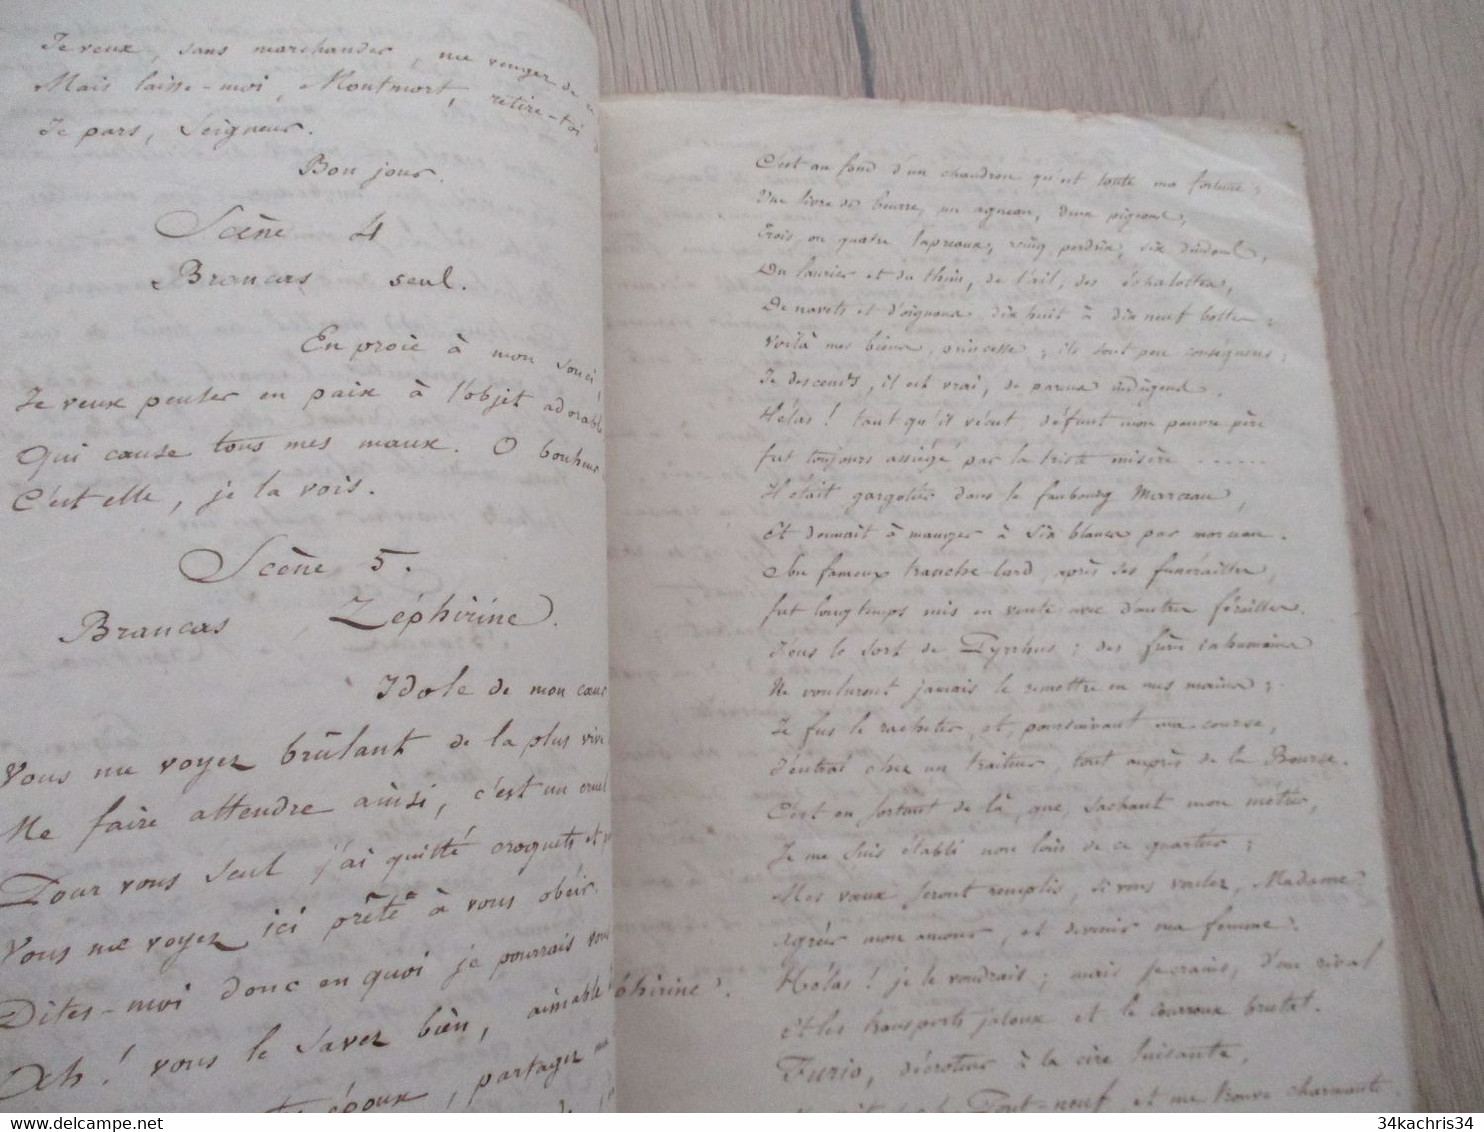 Je veux, sans marchander, me venger de
Mais laisse-moi, Montmort, retire-toi
Je pars, Seigneur.
Bon jour.
Scène 4
Brancas seul.
En proie à mon souci,
Je veux penser en paix à l'objet adorable
Qui cause tous mes maux. O bonheur
C'est elle, je la vois.
Scène 5.
Brancas, Zéphirine.
Idole de mon cœur
Vous me voyez brûlant de la plus vive
Me faire attendre ainsi, c'est un cruel
Pour vous seul j'ai quitté croquets et
Vous me voyez ici prête à vous obéir.
Dites-moi donc en quoi je pourrais vous
Ah! vous le savez bien, aimable
époux, partager
C'est au fond d'un chaudron qu'est toute ma fortune;
Une livre de beurre, un agneau, deux pigeons,
Trois ou quatre lapreaux, cinq perdrix, six dindons,
Du laurier et du thin, de l'ail, des échalottes,
De navets et d'oignons, dix huit à dix neuf bottes;
Voilà mes biens, princesse; ils sont peu conséquens;
Je descends, il est vrai, de parens indigens.
Hélas! tant qu'il vécut défunt mon pauvre père
fut toujours assiégé par la triste misère ......
Il était gargotier dans le faubourg Marceau,
Et donnait à manger à six blancs par morceau.
Son fameux tranche-lard, après ses funérailles,
fut longtemps mis en vente avec d'autres férailles.
Sous le sort de Pyrrhus; des
Ne voulurent jamais le remettre en mes mains;
Je fus le racheter, et, poursuivant ma course,
J'entrai chez un traiteur, tout auprès de la Bourse.
C'est en sortant de là, que, sachant mon métier,
Je me suis établi non loin de ce quartier;
Mes vœux seront remplis, si vous voulez, Madame
Agréer mon amour, et devenir ma femme.
éphirine. Hélas! je le voudrais; mais je crains, d'un rival
Et les transports jaloux et le courroux brutal.
Furio, décroteur à la cire luisante,
Pont-neuf, et me trouve charmante
34kachris34